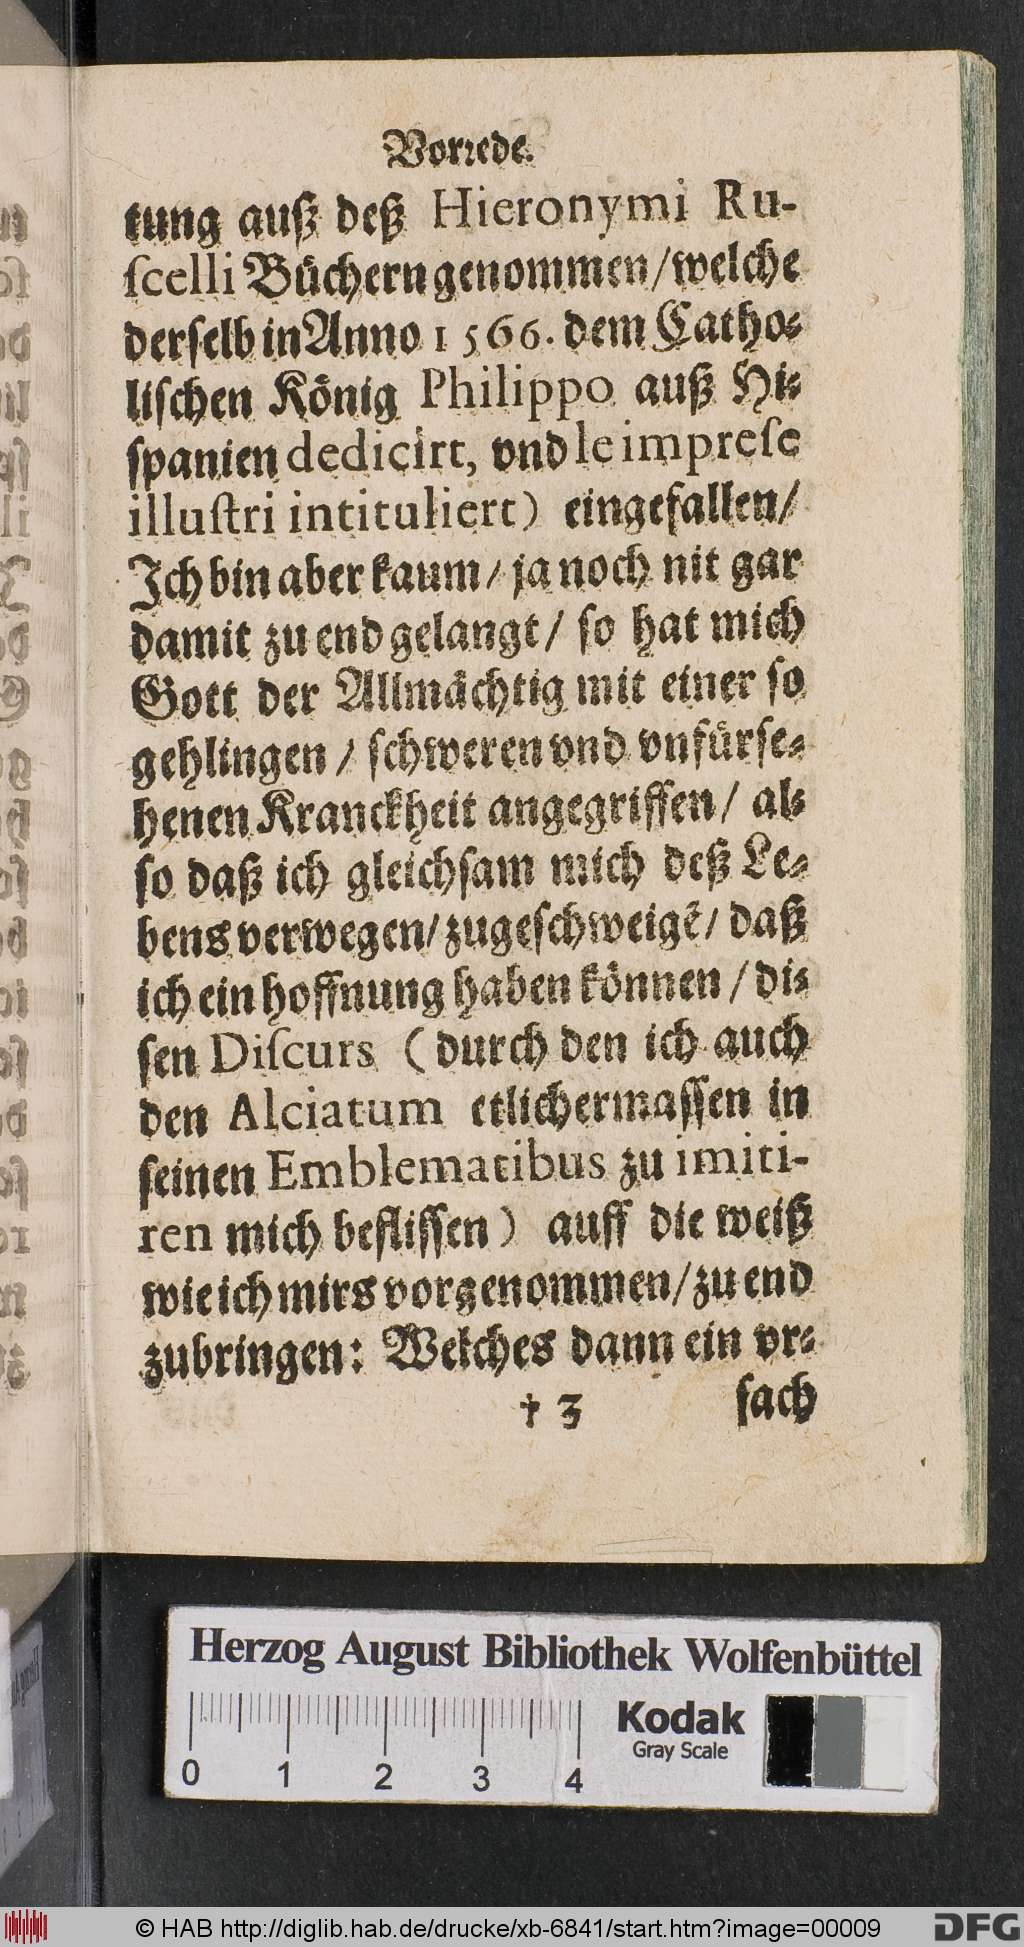 Vorꝛede.
tung auß deß Hieronymi Ru-
ſcelli Büchern genommen/welche
derſelb in Anno 1566. dem Catho-
liſchen König Philippo auß Hi-
ſpanien dedicirt, vnd le impreſe
illuſtri intituliert) eingefallen/
Ich bin aber kaum/ ja noch nit gar
damit zu end gelangt/ ſo hat mich
Gott der Allmächtig mit einer ſo
gehlingen / ſchweren vnd vnfürſe-
henen Kranckheit angegriffen/ al-
ſo daß ich gleichſam mich deß Le-
bens verwegen/zugeſchweigẽ/ daß
ich ein hoffnung haben können / di-
ſen Diſcurs (durch den ich auch
den Alciatum etlichermaſſen in
ſeinen Emblematibus zu imiti-
ren mich befliſſen) auff die weiß
wie ich mirs vorgenommen/zu end
zubringen: Welches dann ein vr-
† 3 ſach
Herzog August Bibliothek Wolfenbüttel
Kodak
Gray Scale
0 1 2 3 4
© HAB http://diglib.hab.de/drucke/xb-6841/start.htm?image=00009
DFG